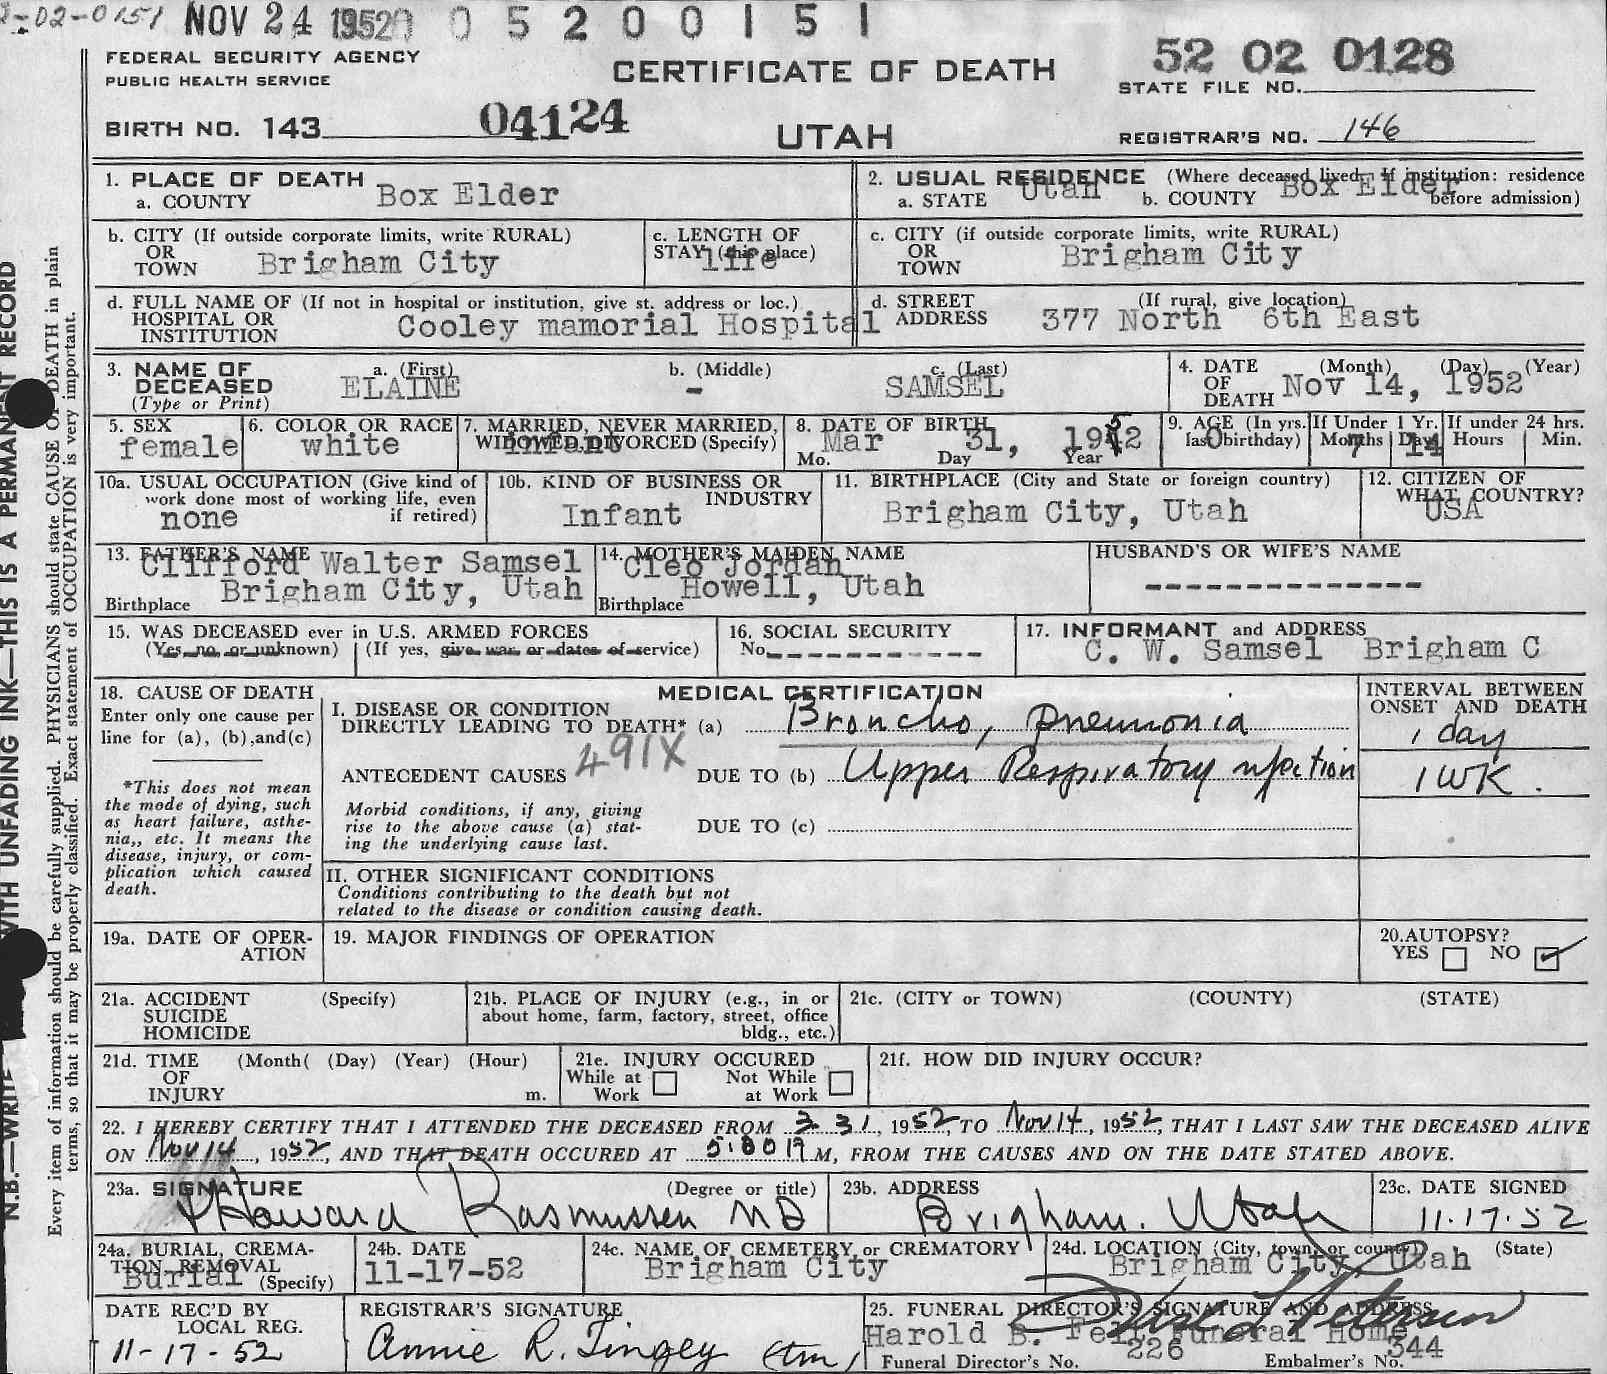 2-02-0151 NOV 24 1952 0 0 5 2 0 0 1 5 1
FEDERAL SECURITY AGENCY
PUBLIC HEALTH SERVICE
CERTIFICATE OF DEATH
52 02 0128
STATE FILE NO.
BIRTH NO. 143 04124
UTAH
REGISTRAR'S NO. 146
1. PLACE OF DEATH
a. COUNTY Box Elder
2. USUAL RESIDENCE (Where deceased lived. If institution: residence before admission)
a. STATE Utah b. COUNTY Box Elder
b. CITY (If outside corporate limits, write RURAL)
OR
TOWN Brigham City
c. LENGTH OF
STAY (this place) life
c. CITY (if outside corporate limits, write RURAL)
OR
TOWN Brigham City
d. FULL NAME OF (If not in hospital or institution, give st. address or loc.)
HOSPITAL OR
INSTITUTION Cooley mamorial Hospital
d. STREET (If rural, give location)
ADDRESS 377 North 6th East
3. NAME OF
DECEASED
(Type or Print)
a. (First) ELAINE
b. (Middle) -
c. (Last) SAMSEL
4. DATE (Month) (Day) (Year)
OF
DEATH Nov 14, 1952
5. SEX
female
6. COLOR OR RACE
white
7. MARRIED, NEVER MARRIED,
WIDOWED, DIVORCED (Specify) infant
8. DATE OF BIRTH
Mar 31, 1952
Mo. Day Year
9. AGE (In yrs. last birthday) 0
If Under 1 Yr.
Months 7 Days 14
If under 24 hrs.
Hours Min.
10a. USUAL OCCUPATION (Give kind of
work done most of working life, even
if retired) none
10b. KIND OF BUSINESS OR
INDUSTRY
Infant
11. BIRTHPLACE (City and State or foreign country)
Brigham City, Utah
12. CITIZEN OF
WHAT COUNTRY?
USA
13. FATHER'S NAME Clifford Walter Samsel
Birthplace Brigham City, Utah
14. MOTHER'S MAIDEN NAME Cleo Jordan
Birthplace Howell, Utah
HUSBAND'S OR WIFE'S NAME
--------------
15. WAS DECEASED ever in U.S. ARMED FORCES
(Yes, no, or unknown) (If yes, give war or dates of service)
16. SOCIAL SECURITY
No. ------------
17. INFORMANT and ADDRESS
C. W. Samsel Brigham C
18. CAUSE OF DEATH
Enter only one cause per
line for (a), (b), and (c)
*This does not mean
the mode of dying, such
as heart failure, asthe-
nia,, etc. It means the
disease, injury, or com-
plication which caused
death.
MEDICAL CERTIFICATION
I. DISEASE OR CONDITION
DIRECTLY LEADING TO DEATH* (a) Broncho, pneumonia
491X
ANTECEDENT CAUSES
DUE TO (b) Upper Respiratory nfection
Morbid conditions, if any, giving
rise to the above cause (a) stat-
ing the underlying cause last.
DUE TO (c)
II. OTHER SIGNIFICANT CONDITIONS
Conditions contributing to the death but not
related to the disease or condition causing death.
INTERVAL BETWEEN
ONSET AND DEATH
1 day
1 WK.
19a. DATE OF OPER-
ATION
19. MAJOR FINDINGS OF OPERATION
20. AUTOPSY?
YES NO
21a. ACCIDENT (Specify)
SUICIDE
HOMICIDE
21b. PLACE OF INJURY (e.g., in or
about home, farm, factory, street, office
bldg., etc.)
21c. (CITY or TOWN) (COUNTY) (STATE)
21d. TIME (Month( (Day) (Year) (Hour)
OF
INJURY m.
21e. INJURY OCCURED
While at Work Not While at Work
21f. HOW DID INJURY OCCUR?
22. I HEREBY CERTIFY THAT I ATTENDED THE DECEASED FROM 3 31, 1952, TO Nov 14, 1952, THAT I LAST SAW THE DECEASED ALIVE
ON Nov 14, 1952, AND THAT DEATH OCCURED AT M, FROM THE CAUSES AND ON THE DATE STATED ABOVE.
23a. SIGNATURE (Degree or title)
Howard Rasmussen MD
23b. ADDRESS
Brigham. Utah
23c. DATE SIGNED
11.17.52
24a. BURIAL, CREMA-
TION REMOVAL
Burial (Specify)
24b. DATE
11-17-52
24c. NAME OF CEMETERY or CREMATORY
Brigham City
24d. LOCATION (City, town, or county) (State)
Brigham City, Utah
DATE REC'D BY
LOCAL REG.
11-17-52
REGISTRAR'S SIGNATURE
Annie R. Tingey
25. FUNERAL DIRECTOR'S SIGNATURE AND ADDRESS
Harold B. Felt Funeral Home
Funeral Director's No. 226 Embalmer's No. 344
WITH UNFADING INK—THIS IS A PERMANENT RECORD
N.B.—WRITE
Every item of information should be carefully supplied. PHYSICIANS should state CAUSE OF DEATH in plain
terms, so that it may be properly classified. Exact statement of OCCUPATION is very important.